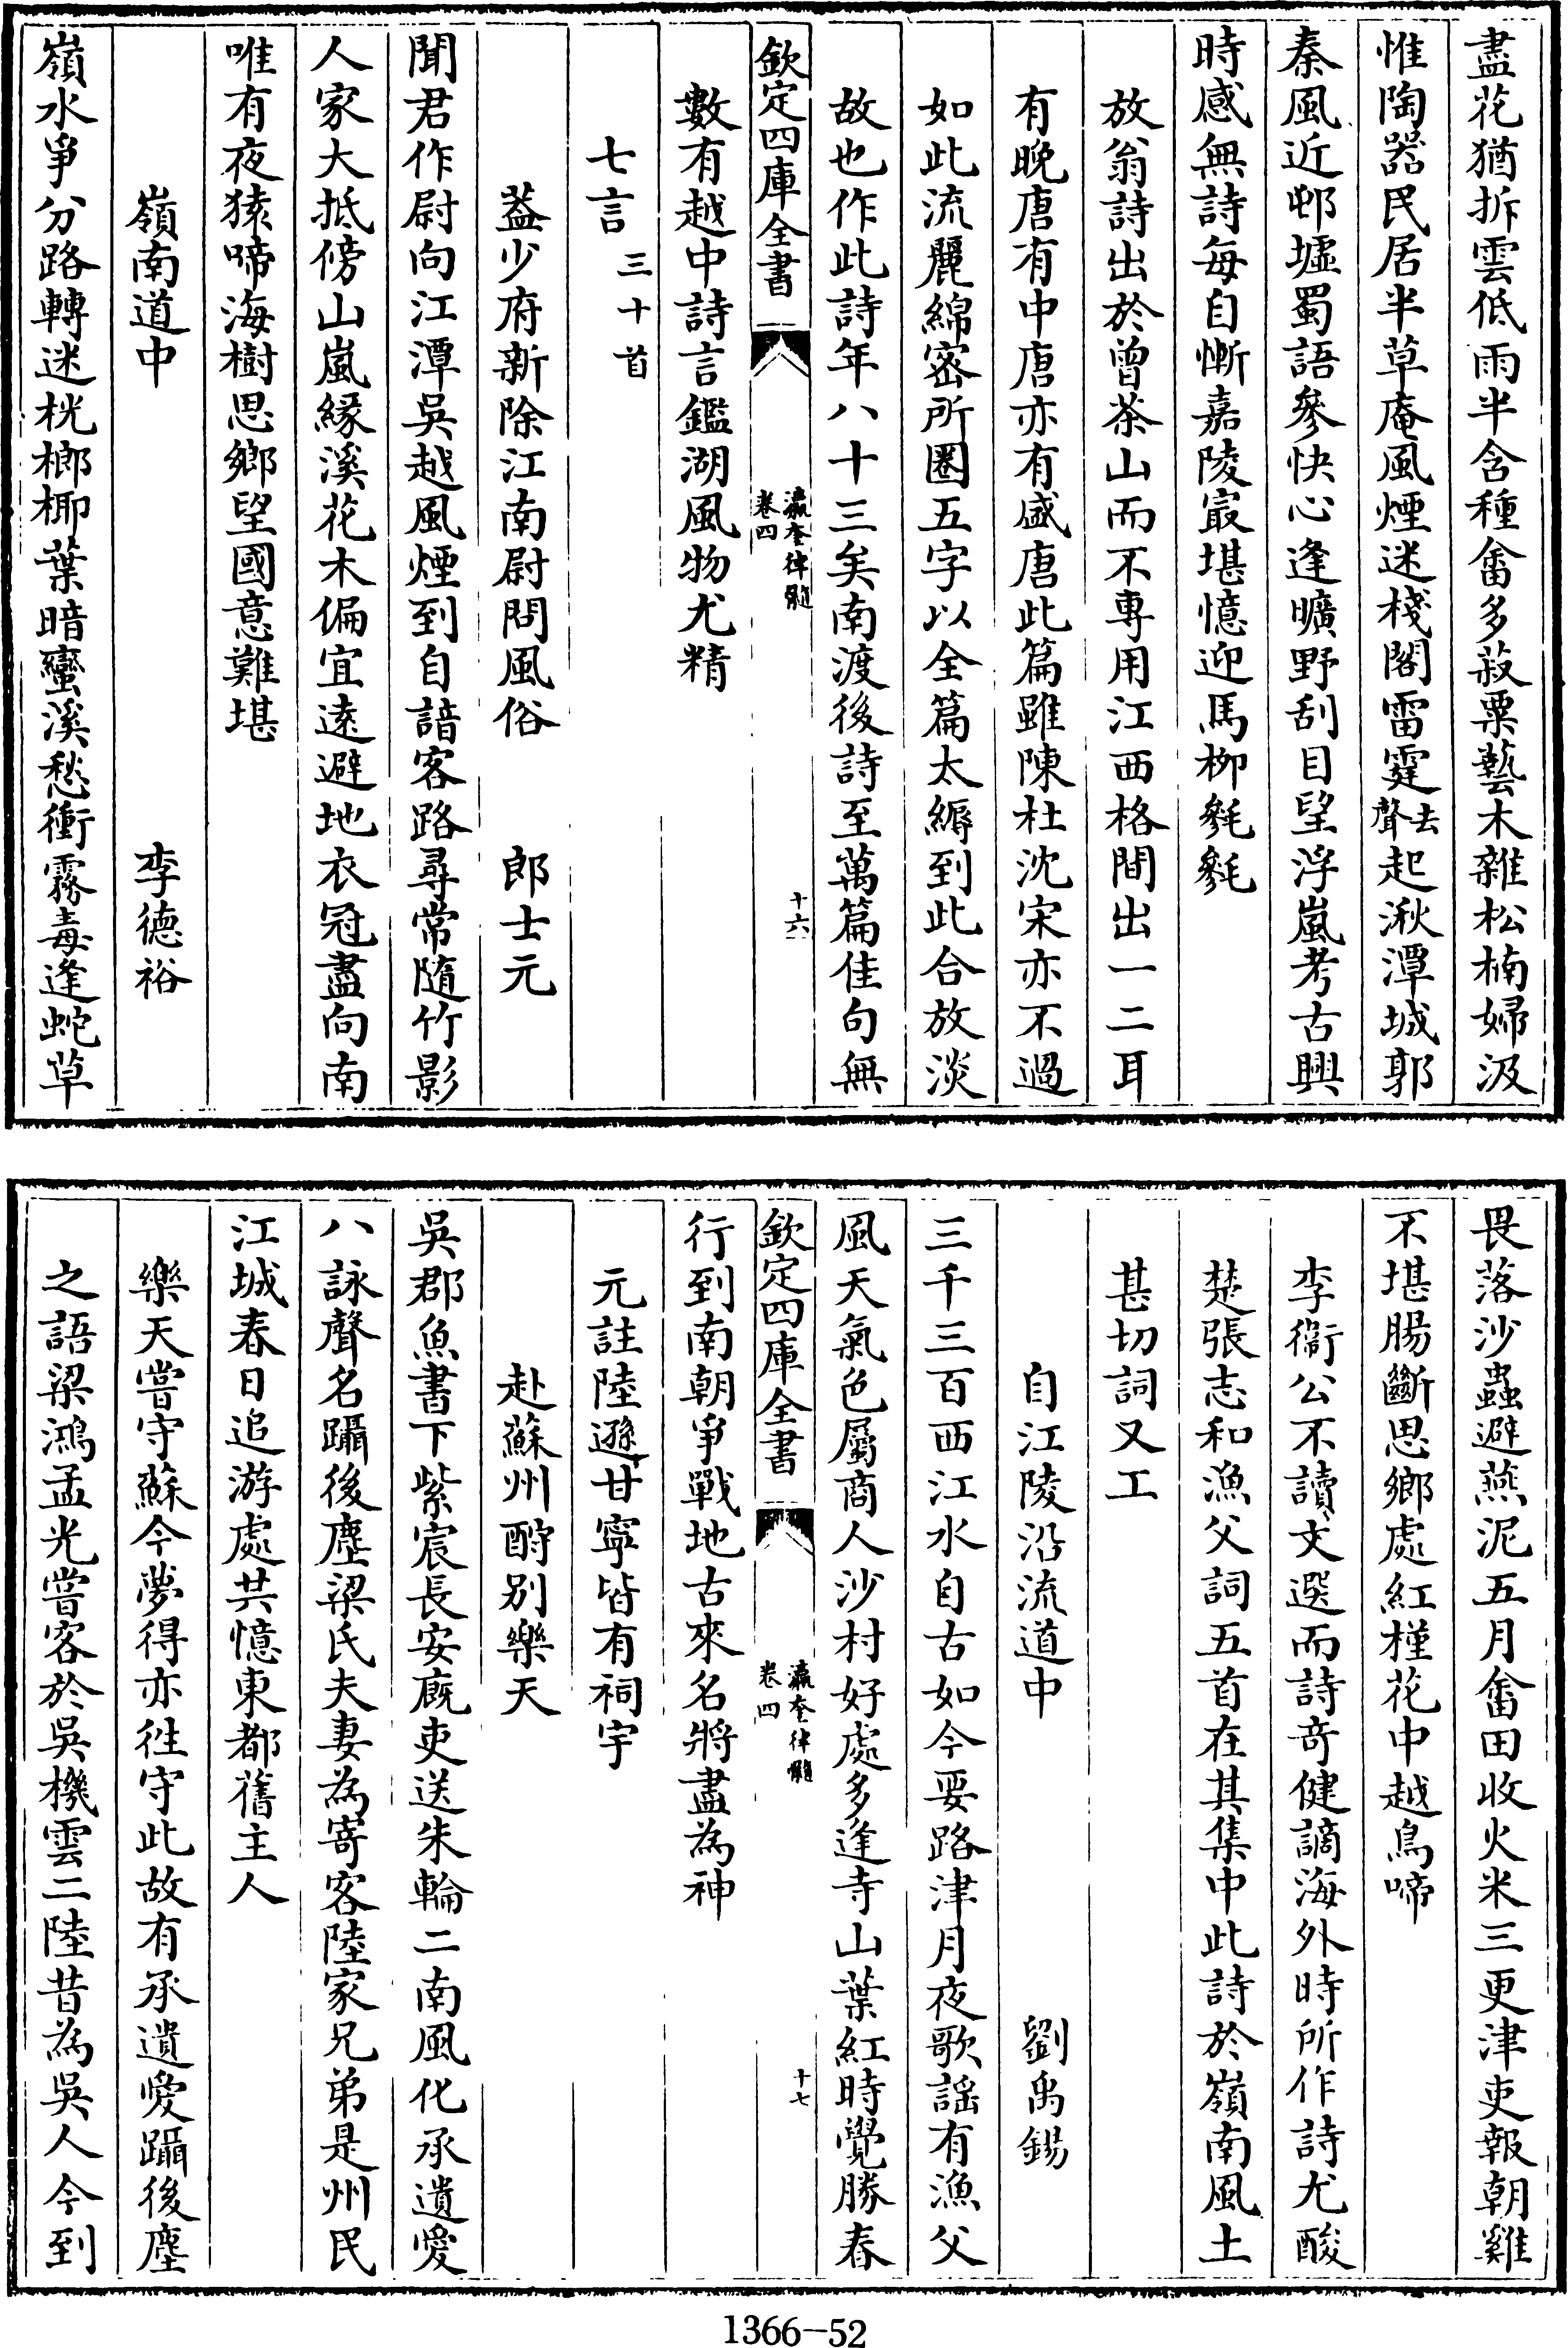 盡花猶拆雲低雨半含種畬多菽粟藝木雜松楠婦汲
惟陶器民居半草庵風煙迷棧閣雷霆去聲起湫潭城郭
秦風近邨墟蜀語參快心逢曠野刮目望浮嵐考古興
時感無詩每自慚嘉陵㝡堪憶迎馬柳毿毿
放翁詩出於曾茶山而不專用江西格間出一二耳
有晚唐有中唐亦有盛唐此篇雖陳杜沈宋亦不過
如此流麗綿密所圈五字以全篇太縟到此合放淡
故也作此詩年八十三矣南渡後詩至萬篇佳句無
欽定四庫全書 瀛奎律髓 卷四 十六
數有越中詩言鑑湖風物尤精
七言 三十首
蓋少府新除江南尉問風俗 郎士元
聞君作尉向江潭吳越風煙到自諳客路尋常隨竹影
人家大抵傍山嵐緣溪花木偏宜遠避地衣冠盡向南
唯有夜猿啼海樹思鄉望國意難堪
嶺南道中 李德裕
嶺水爭分路轉迷桄榔椰葉暗蠻溪愁衝霧毒逢蛇草
畏落沙蟲避燕泥五月畬田收火米三更津吏報朝雞
不堪腸斷思鄉處紅槿花中越鳥啼
李衞公不讀文選而詩奇健謫海外時所作詩尤酸
楚張志和漁父詞五首在其集中此詩於嶺南風土
甚切詞又工
自江陵沿流道中 劉禹錫
三千三百西江水自古如今要路津月夜歌謡有漁父
風天氣色屬商人沙村好處多逢寺山葉紅時覺勝春
欽定四庫全書 瀛奎律髓 卷四 十七
行到南朝爭戰地古來名將盡為神
元註陸遜甘寧皆有祠宇
赴蘇州酹别樂天
吳郡魚書下紫宸長安廐吏送朱輪二南風化承遺愛
八詠聲名躡後塵梁氏夫妻為寄客陸家兄弟是州民
江城春日追游處共憶東都舊主人
樂天嘗守蘇今夢得亦往守此故有承遺愛躡後塵
之語梁鴻孟光嘗客於吳機雲二陸昔為吳人今到
1366—52